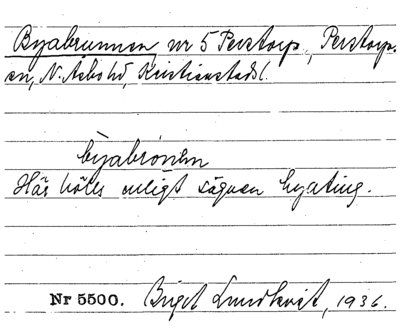 Byabrunnen nr 5 Perstorp, Perstorps-
sn, N. Åsbo hd, Kristianstads l.
byabrönnen
Här hölls enligt sägnen byating.
Nr 5500. Birgit Lundkvist, 1936.